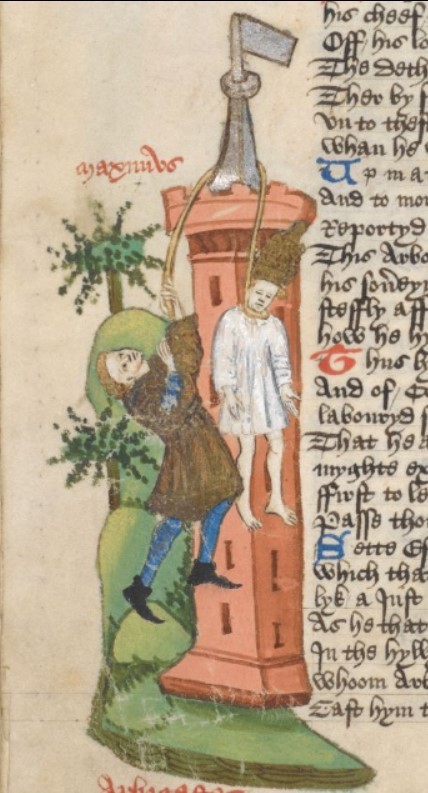 maxmius
his cheef
Off his lo
The deth
Ther by f
vn to thes
whan he
Up ma
And to mor
Reportyd
This Arbo
his soveyn
steffly aff
how he h
Thus b
And of
labouryd
That he a
myghte ex
ffirst to le
Passe tho
Sette
which that
lyk a Just
As he that
In the hyll
whoom Arbo
Cast hym